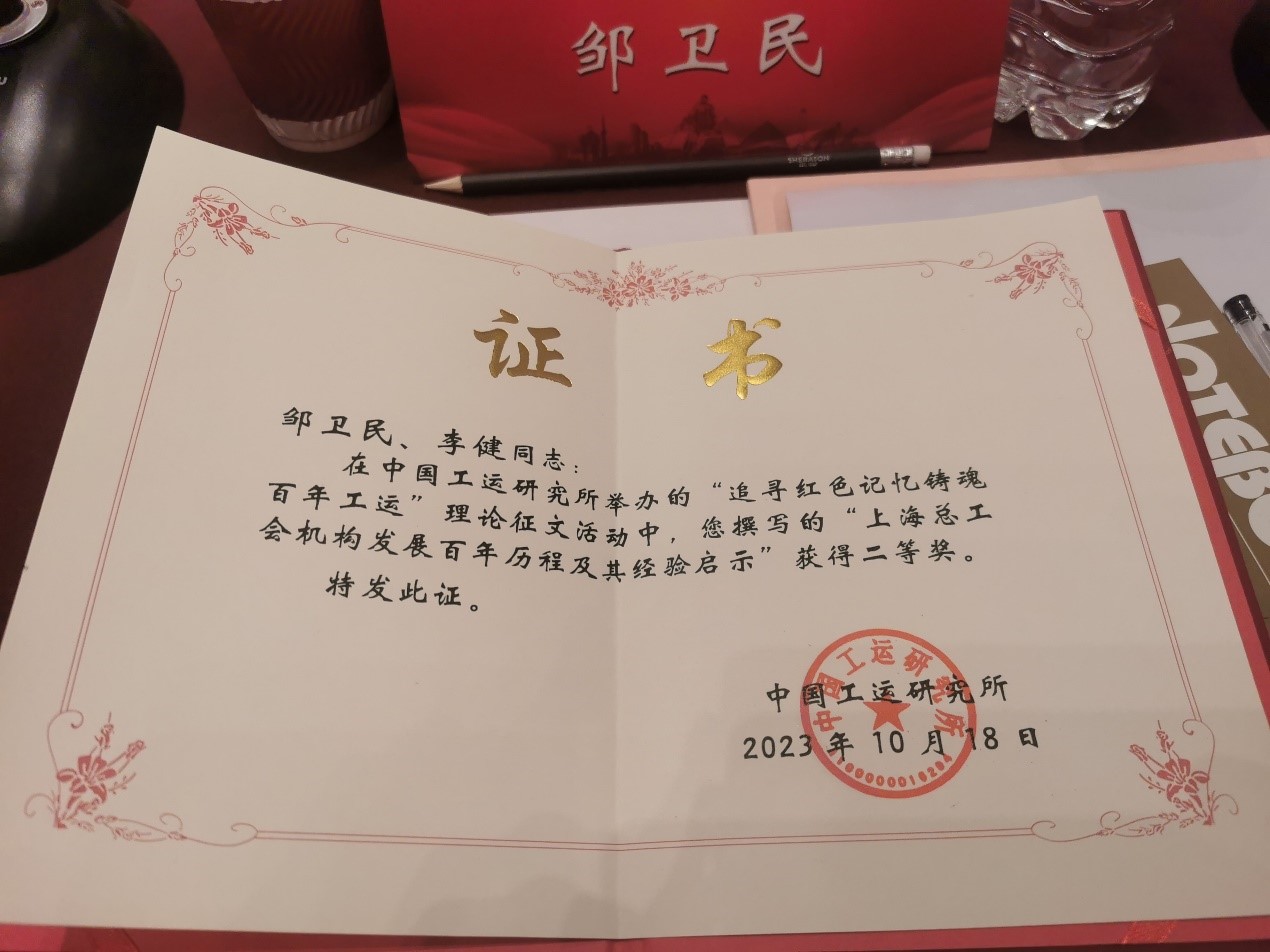 邹卫民
SHERATON
NOTEBO
证 书
邹卫民、李健同志：
在中国工运研究所举办的“追寻红色记忆铸魂
百年工运”理论征文活动中，您撰写的“上海总工
会机构发展百年历程及其经验启示”获得二等奖。
特发此证。
中国工运研究所
中国工运研究所
2023年10月18日